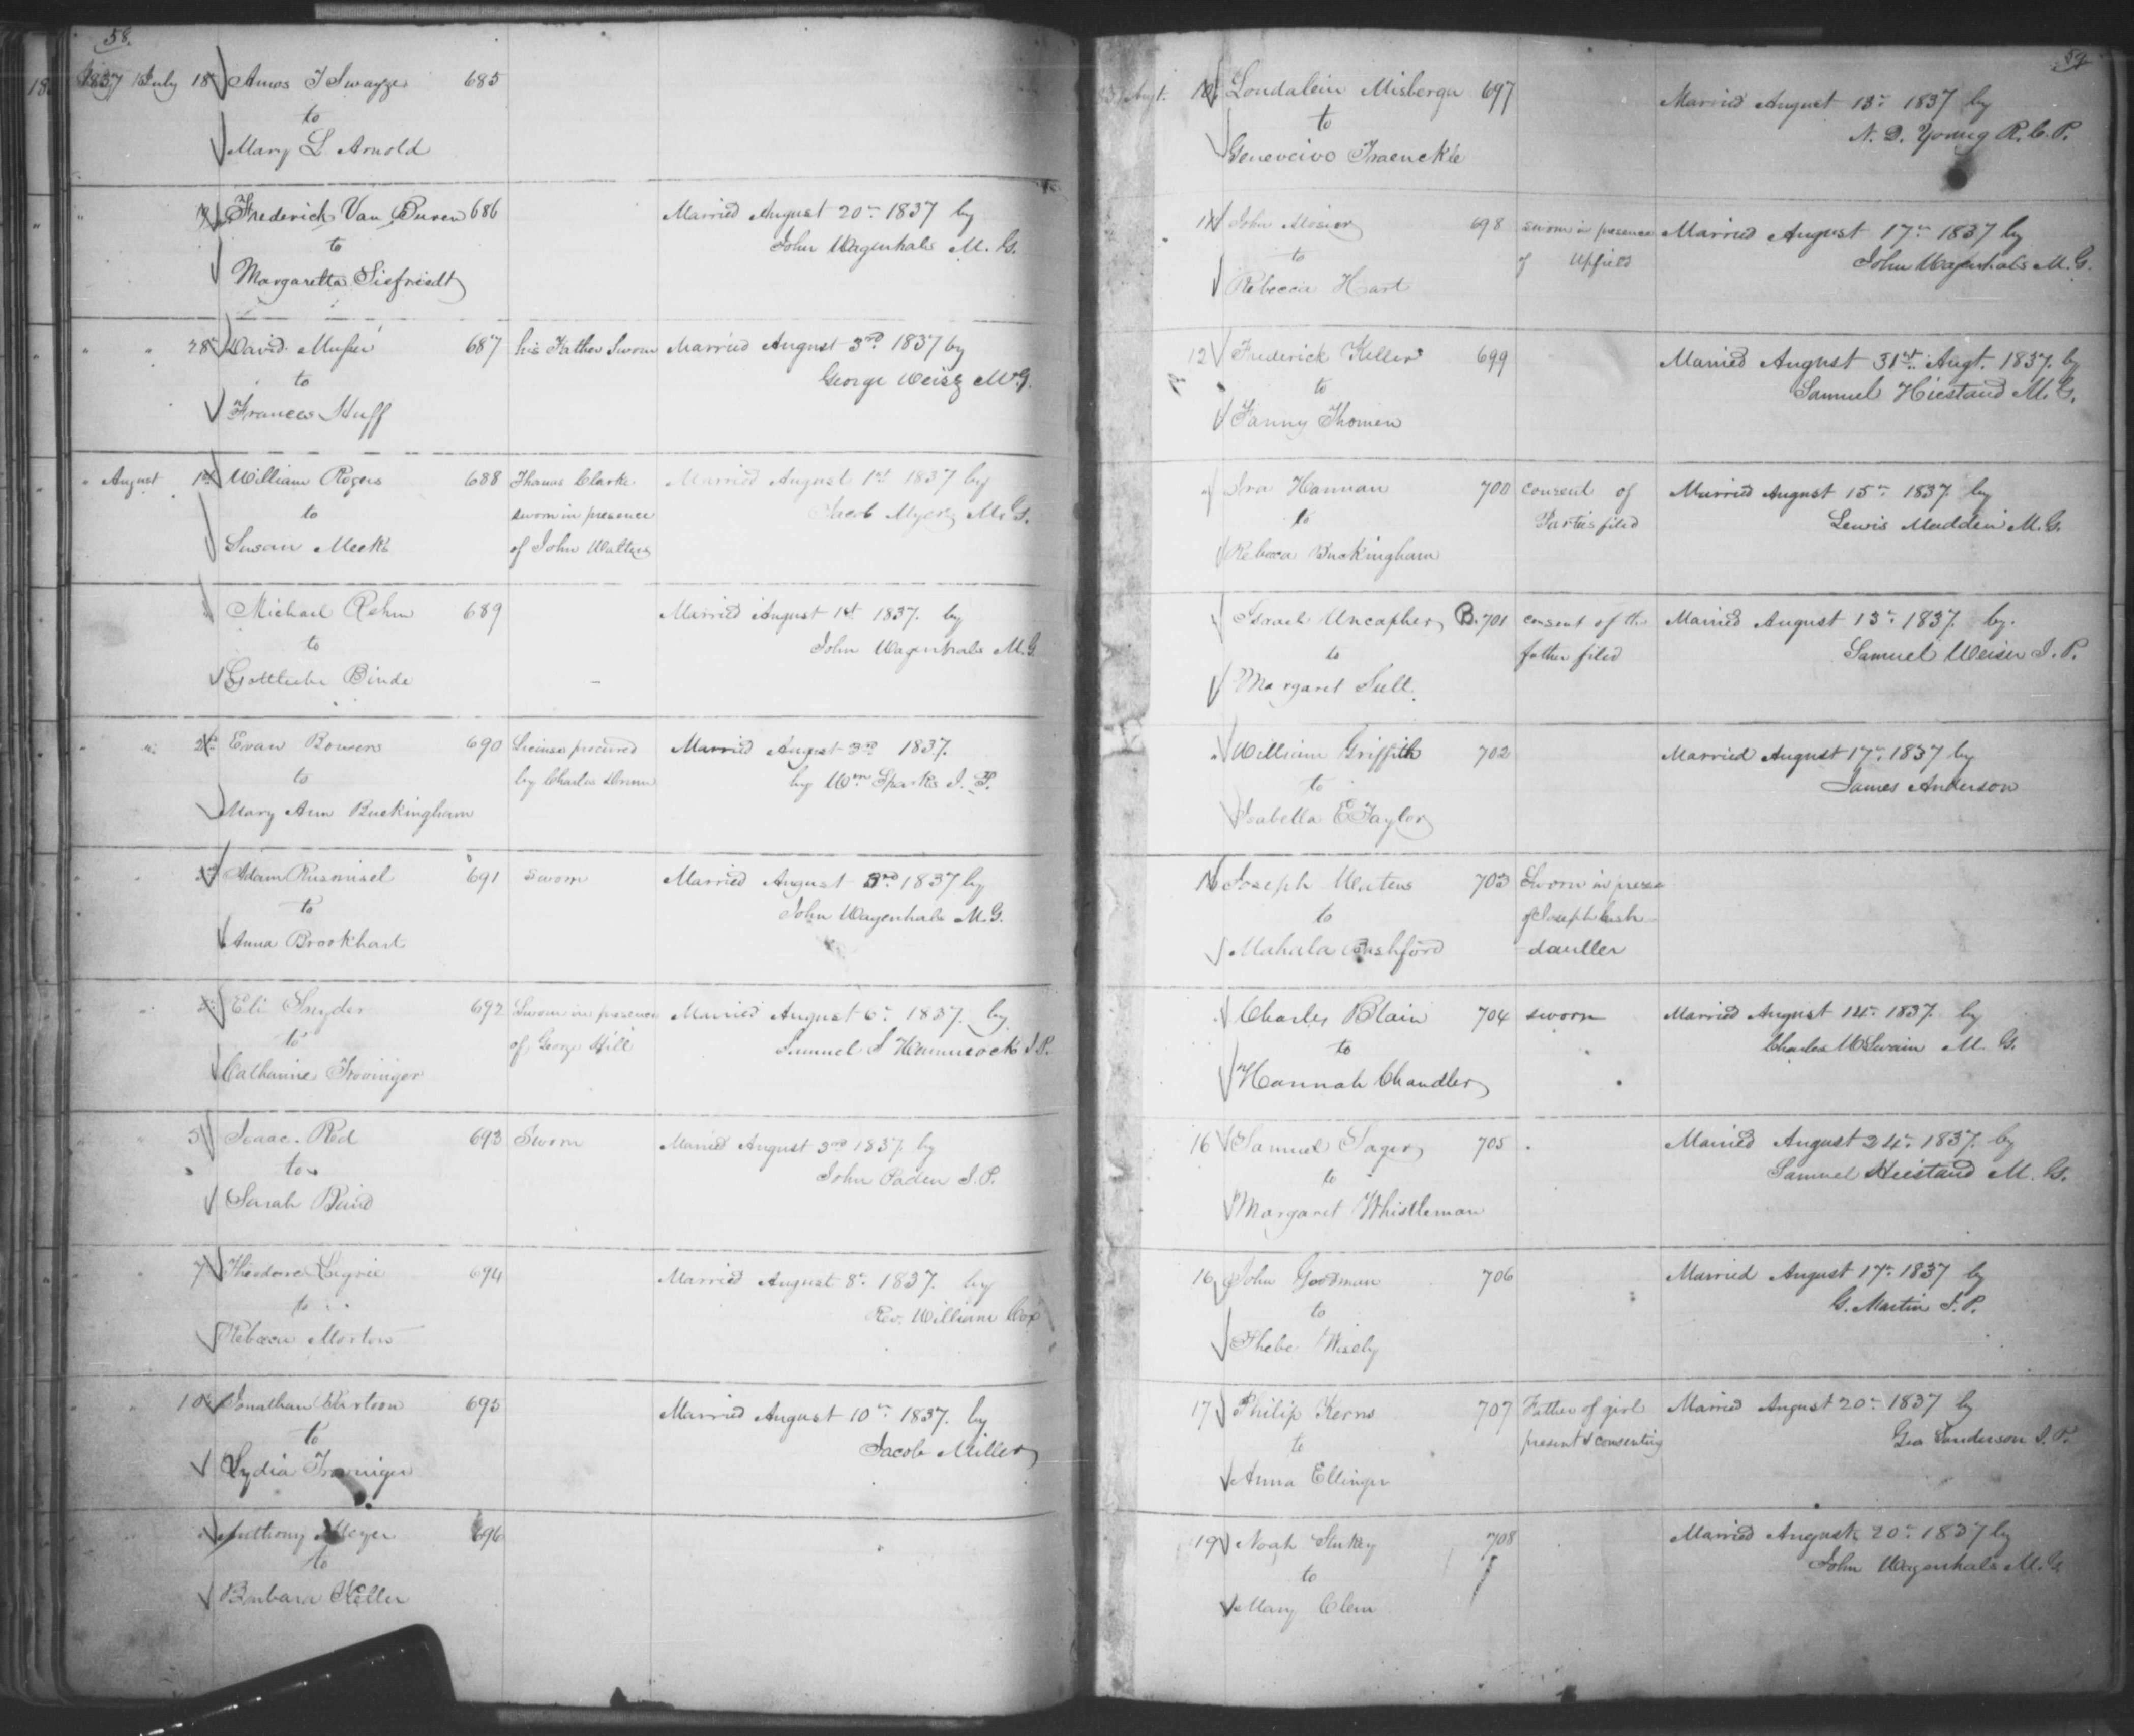 58.
1837 July 18 Amos J Swayze 685
to
Mary L Arnold
" 19 Frederick Van Buren 686 Married August 20th 1837 by
to John Wagenhals M. G.
Margaretta Siefriedt
" " 28 David Musser 687 his Father Sworn Married August 3rd 1837 by
to George Weisz M.G.
Frances Huff
" August 1st William Rogers 688 Thomas Clarke Married August 1st 1837 by
to sworn in presence Jacob Myers M.G.
Susan Meeks of John Walters
Michael Rehm 689 Married August 1st 1837. by
to John Wagenhals M.G.
Gottliebe Binde
" " 2d Evan Bowen 690 License procured Married August 3rd 1837.
to by Charles by Wm Sparks J. P.
Mary Ann Buckingham
" " Adam Rusmisel 691 sworn Married August 3rd 1837 by
to John Wagenhals M.G.
Anna Brookhart
" " Eli Snyder 692 Sworn in presence Married August 6th 1837. by
to of George Hill Samuel S Hammock J.P.
Catharine Trovinger
" " 5 Isaac Red 693 Sworn Married August 3rd 1837. by
to John Paden J.P.
Sarah Baird
" " 7 Theodore 694 Married August 8th 1837. by
to Rev. William Cox
Rebecca Morton
" " 10 Jonathan 695 Married August 10th 1837. by
to Jacob Miller
Lydia Trovinger
" " Anthony Meyer 696
to
Barbara Keller
59.
Augt. 10 Londalein Misberga 697 Married August 13th 1837 by
to N. D. Young R.C.P.
Genevcivo Fraenckle
11 John Mosier 698 sworn in presence Married August 17th 1837 by
to of Upfield John Wagenhals M.G.
Rebecca Hart
12 Frederick Keller 699 Married August 31st Augt. 1837. by
to Samuel Hiestand M.G.
Fanny Thomen
" Ira Hannan 700 consent of Married August 15th 1837. by
to Parties filed Lewis Madden M.G.
Rebecca Buckingham
Israel Uncapher B. 701 consent of the Married August 13th 1837. by.
to father filed Samuel Weiser J.P.
Margaret Sult.
" William Griffith 702 Married August 17th 1837 by
to James Anderson
Isabella E Taylor
Joseph Waters 703 Sworn in
to of Joseph
Mahala Bushford
Charles Blain 704 sworn Married August 14th 1837. by
to Charles McSwain M. G.
Hannah Chandler
16 Samuel Sager 705 Married August 24th 1837. by
to Samuel Hiestand M. G.
Margaret Whistleman
16 John Goodman 706 Married August 17th 1837 by
to G. Martin J.P.
Phebe Wisely
17 Philip Kerns 707 Father of girl Married August 20th 1837 by
to present & consenting Geo Sanderson J.P.
Anna Ellinger
19 Noah Stukey 708 Married August 20th 1837 by
to John Wagenhals M.G
Mary Clem